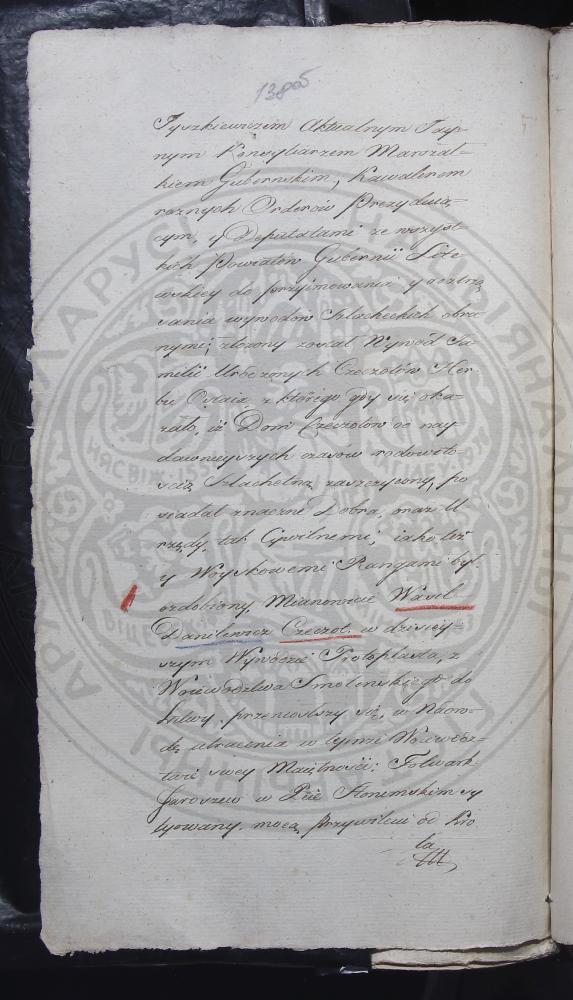 138об
Tyszkiewiczem Aktualnym Tay-
nym Konsyliarzem Marszał-
kiem Gubernskim, Kawalerem
roznych Orderow Prezyduią-
cym, y Deputatami ze wszyst-
kich Powiatow Gubernii Lite-
wskiey do przyimowania y roztrzą
sania wywodow Szlacheckich obra-
nymi; złożony został Wywod Fa-
milii Urodzonych Czeczotow Her-
bu Ostoia, z ktorego gdy się oka-
zało, iż Dom Czeczotow od nay
dawnieyszych czasow rodowito-
scią Szlachetną zaszczycony, po
siadał znaczne Dobra, oraz U
rzędy, tak Cywilnemi, iako też
y Woyskowemi Rangami był
ozdobiony, Mianowicie Wasil
Danilewicz Czeczot, w dzisiey-
szym Wywodzie Protoplasta, z
Woiewodztwa Smolenskiego do
Litwy, przeniosłszy się, w Nagro-
dę utracenia w tymże Woiewodz-
twie swey Maiętnosci: Folwark
Jaroszew w Pcie Słonimskim sy
tuowany, mocą Przywileiu od Kro
la
АРХІЎ БЕЛАРУС
НАЦЫЯНАЛЬНЫ
НЯСВІЖ